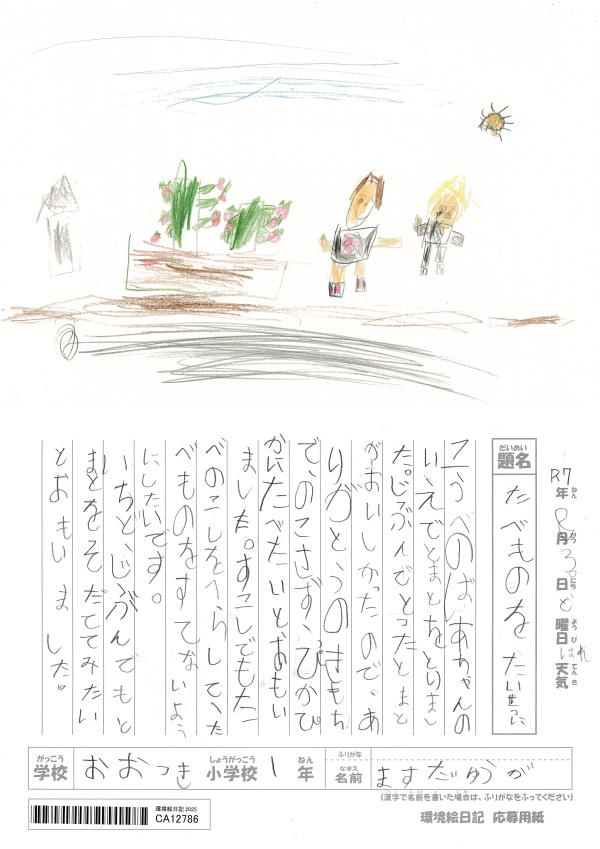 題名 だいめい
たべものを たいせつに
R7年 ねん 8月 がつ 30日 にち ど曜日 ようび はれ 天気 てんき
こうべのばあちゃんの
いえでとまとをとりまし
た。じぶんでとったとまと
がおいしかったので、あ
りがとうのきもち
で、のこさず、ぴかぴ
かにたべたいとおもい
ました。すこしでもた
べのこしをへらして、た
べものをすてないよう
にしたいです。
いちど、じぶんでもと
まとをそだててみたい
とおもいました。
学校 がっこう おおつき 小学校 しょうがっこう 1年 ねん 名前 なまえ ふりがな ますだゆうが
(漢字で名前を書いた場合は、ふりがなをふってください)
環境絵日記 応募用紙
環境絵日記 2025
CA12786